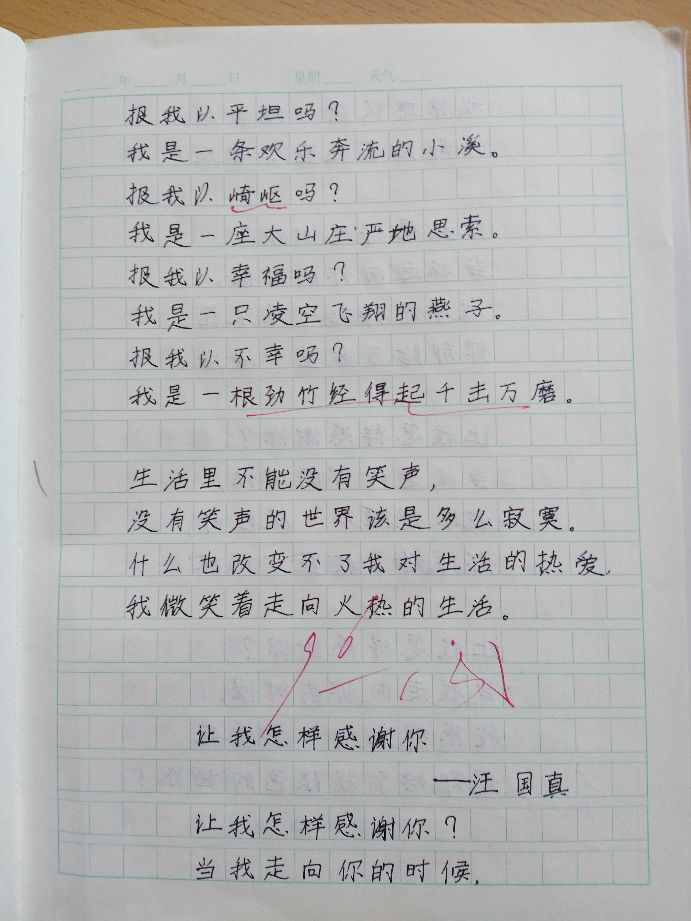 年 月 日 星期 天气
报我以平坦吗？
我是一条欢乐奔流的小溪。
报我以崎岖吗？
我是一座大山庄严地思索。
报我以幸福吗？
我是一只凌空飞翔的燕子。
报我以不幸吗？
我是一根劲竹经得起千击万磨。
生活里不能没有笑声，
没有笑声的世界该是多么寂寞。
什么也改变不了我对生活的热爱，
我微笑着走向火热的生活。
90
让我怎样感谢你
——汪国真
让我怎样感谢你？
当我走向你的时候，